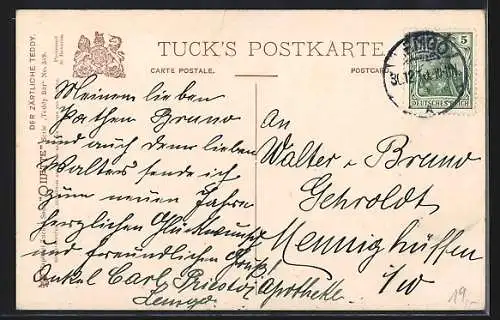 TUCK'S POSTKARTE
CARTE POSTALE.
POSTCARD.
DER ZÄRTLICHE TEDDY.
"OILETTE"
Serie „Teddy Bär"
LEMGO
30.12.
DEUTSCHES REICH
5
Meinem lieben
Pathen Bruno
und auch dem lieben
Walter sende ich
zum neuen Jahre
herzlichen Glückwunsch
und freundlichen Gruß
Onkel Carl
Lemgo.
An
Walter u Bruno
Gehroldt
Mennighüffen
i/w
Apotheke.
19,-